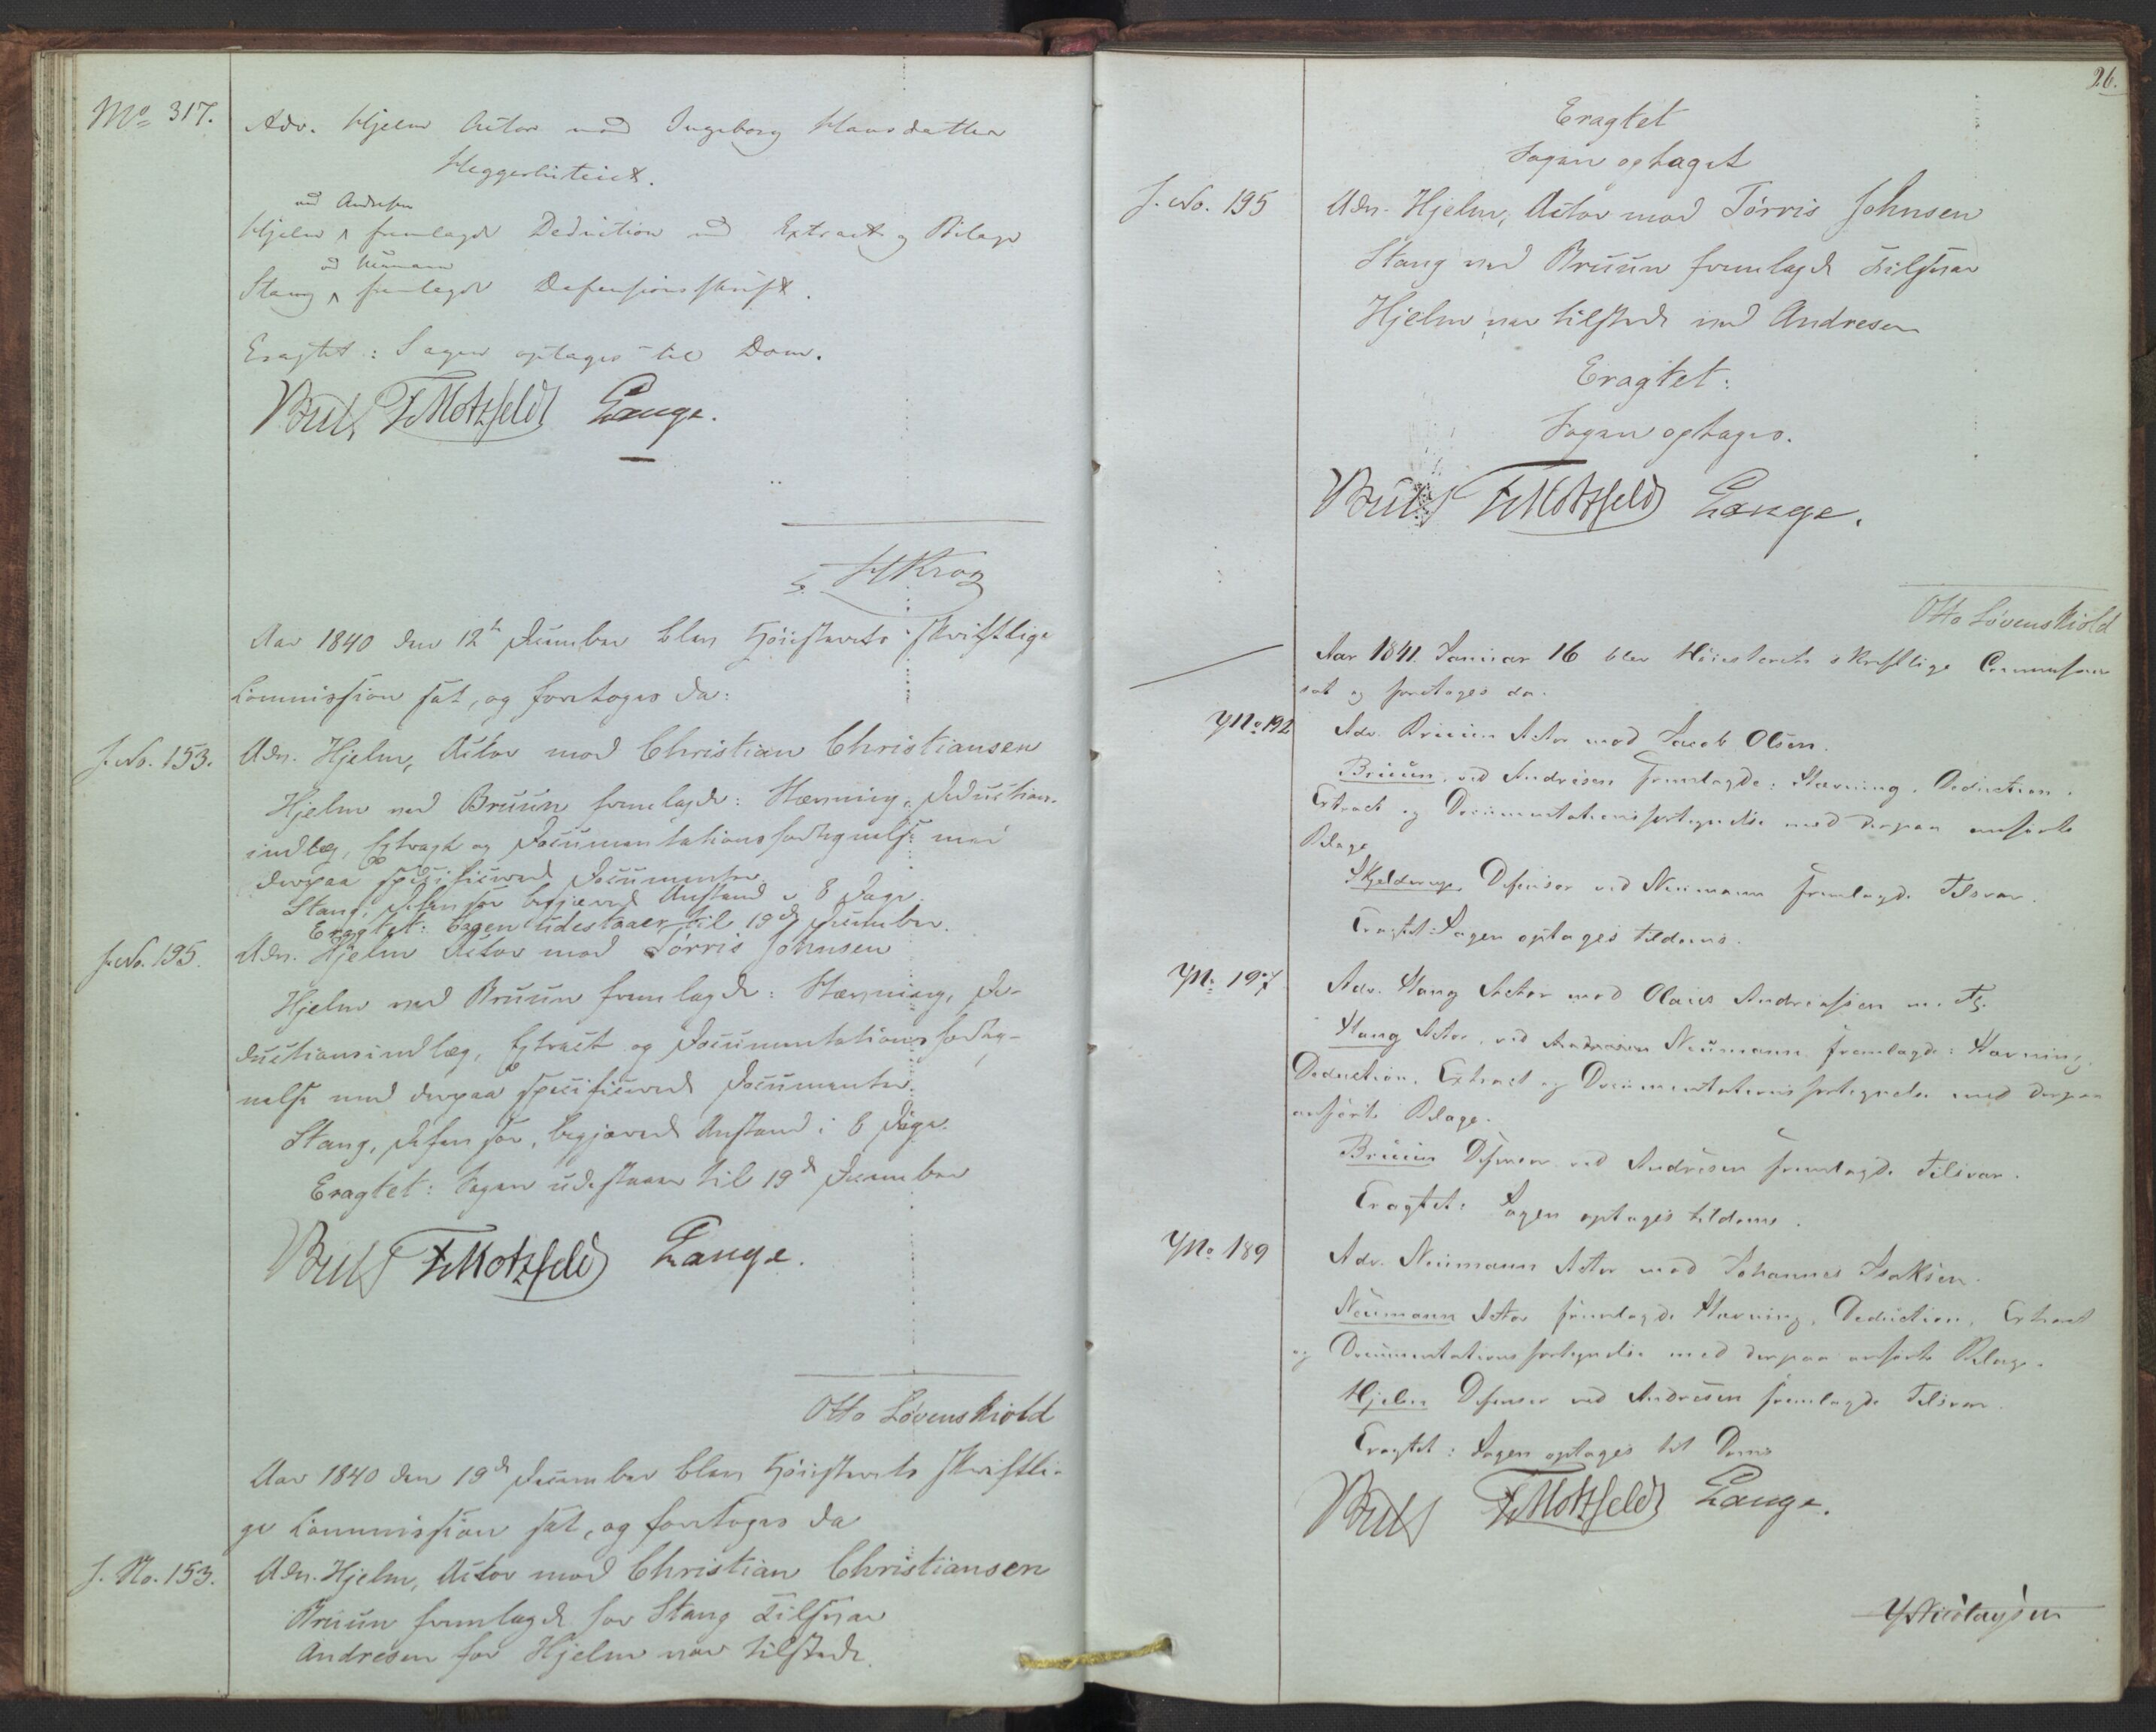 No 317.
Adv. Hjelm Actor mod Ingeborg Hansdatter
ved Andresen
Hjelm ^ fremlagde Deduction med Extract og Bilage
ved Neumann
Stang ^ fremlagde Defensionsskrift.
Eragtet: Sagen optages til Dom.
Bull FMotzfeldt Lange.
HKrog
Aar 1840 den 12te December blev Höiesterets skriftlige
Commission sat, og foretoges da:
J. No. 153.
Adv. Hjelm, Actor mod Christian Christiansen
Hjelm ved Bruun fremlagde: Stævning, Deductions-
indlæg, Extract og Documentationsfortegnelse med
derpaa specificerede Documenter.
Stang, Defensor begjærede Anstand i 8 Dage.
Eragtet: Sagen udestaaer til 19de December.
J. No. 195.
Adv. Hjelm Actor mod Törris Johnsen
Hjelm ved Bruun fremlagde: Stævning, De-
ductionsindlæg, Extract og Documentationsforteg-
nelse med derpaa specificerede Documenter.
Stang, Defensor, begjærede Anstand i 8 Dage.
Eragtet: Sagen udestaaer til 19de December
Bull FMotzfeldt Lange.
Otto Lövenskiold
Aar 1840 den 19de December blev Höiesterets skriftli-
ge Commission sat, og foretoges da
J. No. 153.
Adv. Hjelm, Actor mod Christian Christiansen
Bruun fremlagde for Stang Tilsvar
Andresen for Hjelm var tilstede.
26.
Eragtet
Sagen optaget
J. No. 195
Adv. Hjelm, Actor mod Törris Johnsen
Stang ved Bruun fremlagde Tilsvar
Hjelm var tilstede ved Andresen
Eragtet:
Sagen optages.
Bull FMotzfeldt Lange.
Otto Lövenskiold
Aar 1841. Januar 16 blev Höiesterets skriftlige Commission
sat og foretages da.
JNo 192
Adv. Bruun Actor mod Jacob Olsen.
Bruun, ved Andresen fremlagde: Stævning, Deduction,
Extract og Documentationsfortegnelse med derpaa anförte
Bilage
Skjelderup Defensor ved Neumann fremlagde Tilsvar.
Eragtet: Sagen optages tildoms.
JNo 197
Adv. Stang Actor mod Olaus Andreassen m. fl.
Stang Actor, ved Neumann fremlagde: Stævning,
Deduction, Extract og Documentationsfortegnelse med derpaa
anförte Bilage.
Bruun Defensor ved Andresen fremlagde Tilsvar.
Eragtet: Sagen optages tildoms.
JNo 189
Adv. Neumann Actor mod Johannes Isaksen.
Neumann Actor fremlagde Stævning, Deduction, Extract
og Documentationsfortegnelse med derpaa anförte Bilage.
Hjelm Defensor ved Andresen fremlagde Tilsvar.
Eragtet: Sagen optages til Doms
Bull FMotzfeldt Lange.
Nicolaysen